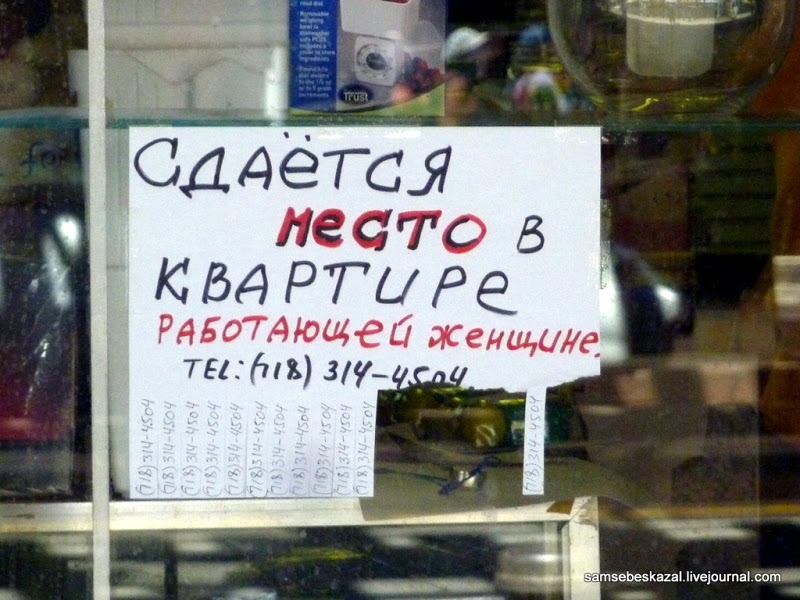 Trust
СДАЁТСЯ
место в
КВАРТИРЕ
РАБОТАЮЩЕЙ ЖЕНЩИНЕ.
TEL: (718) 314-4504
(718) 314-4504
(718) 314-4504
(718) 314-4504
(718) 314-4504
(718) 314-4504
(718) 314-4504
(718) 314-4504
(718) 314-4504
(718) 314-4504
(718) 314-4504
(718) 314-4504
(718) 314-4504
samsebeskazal.livejournal.com